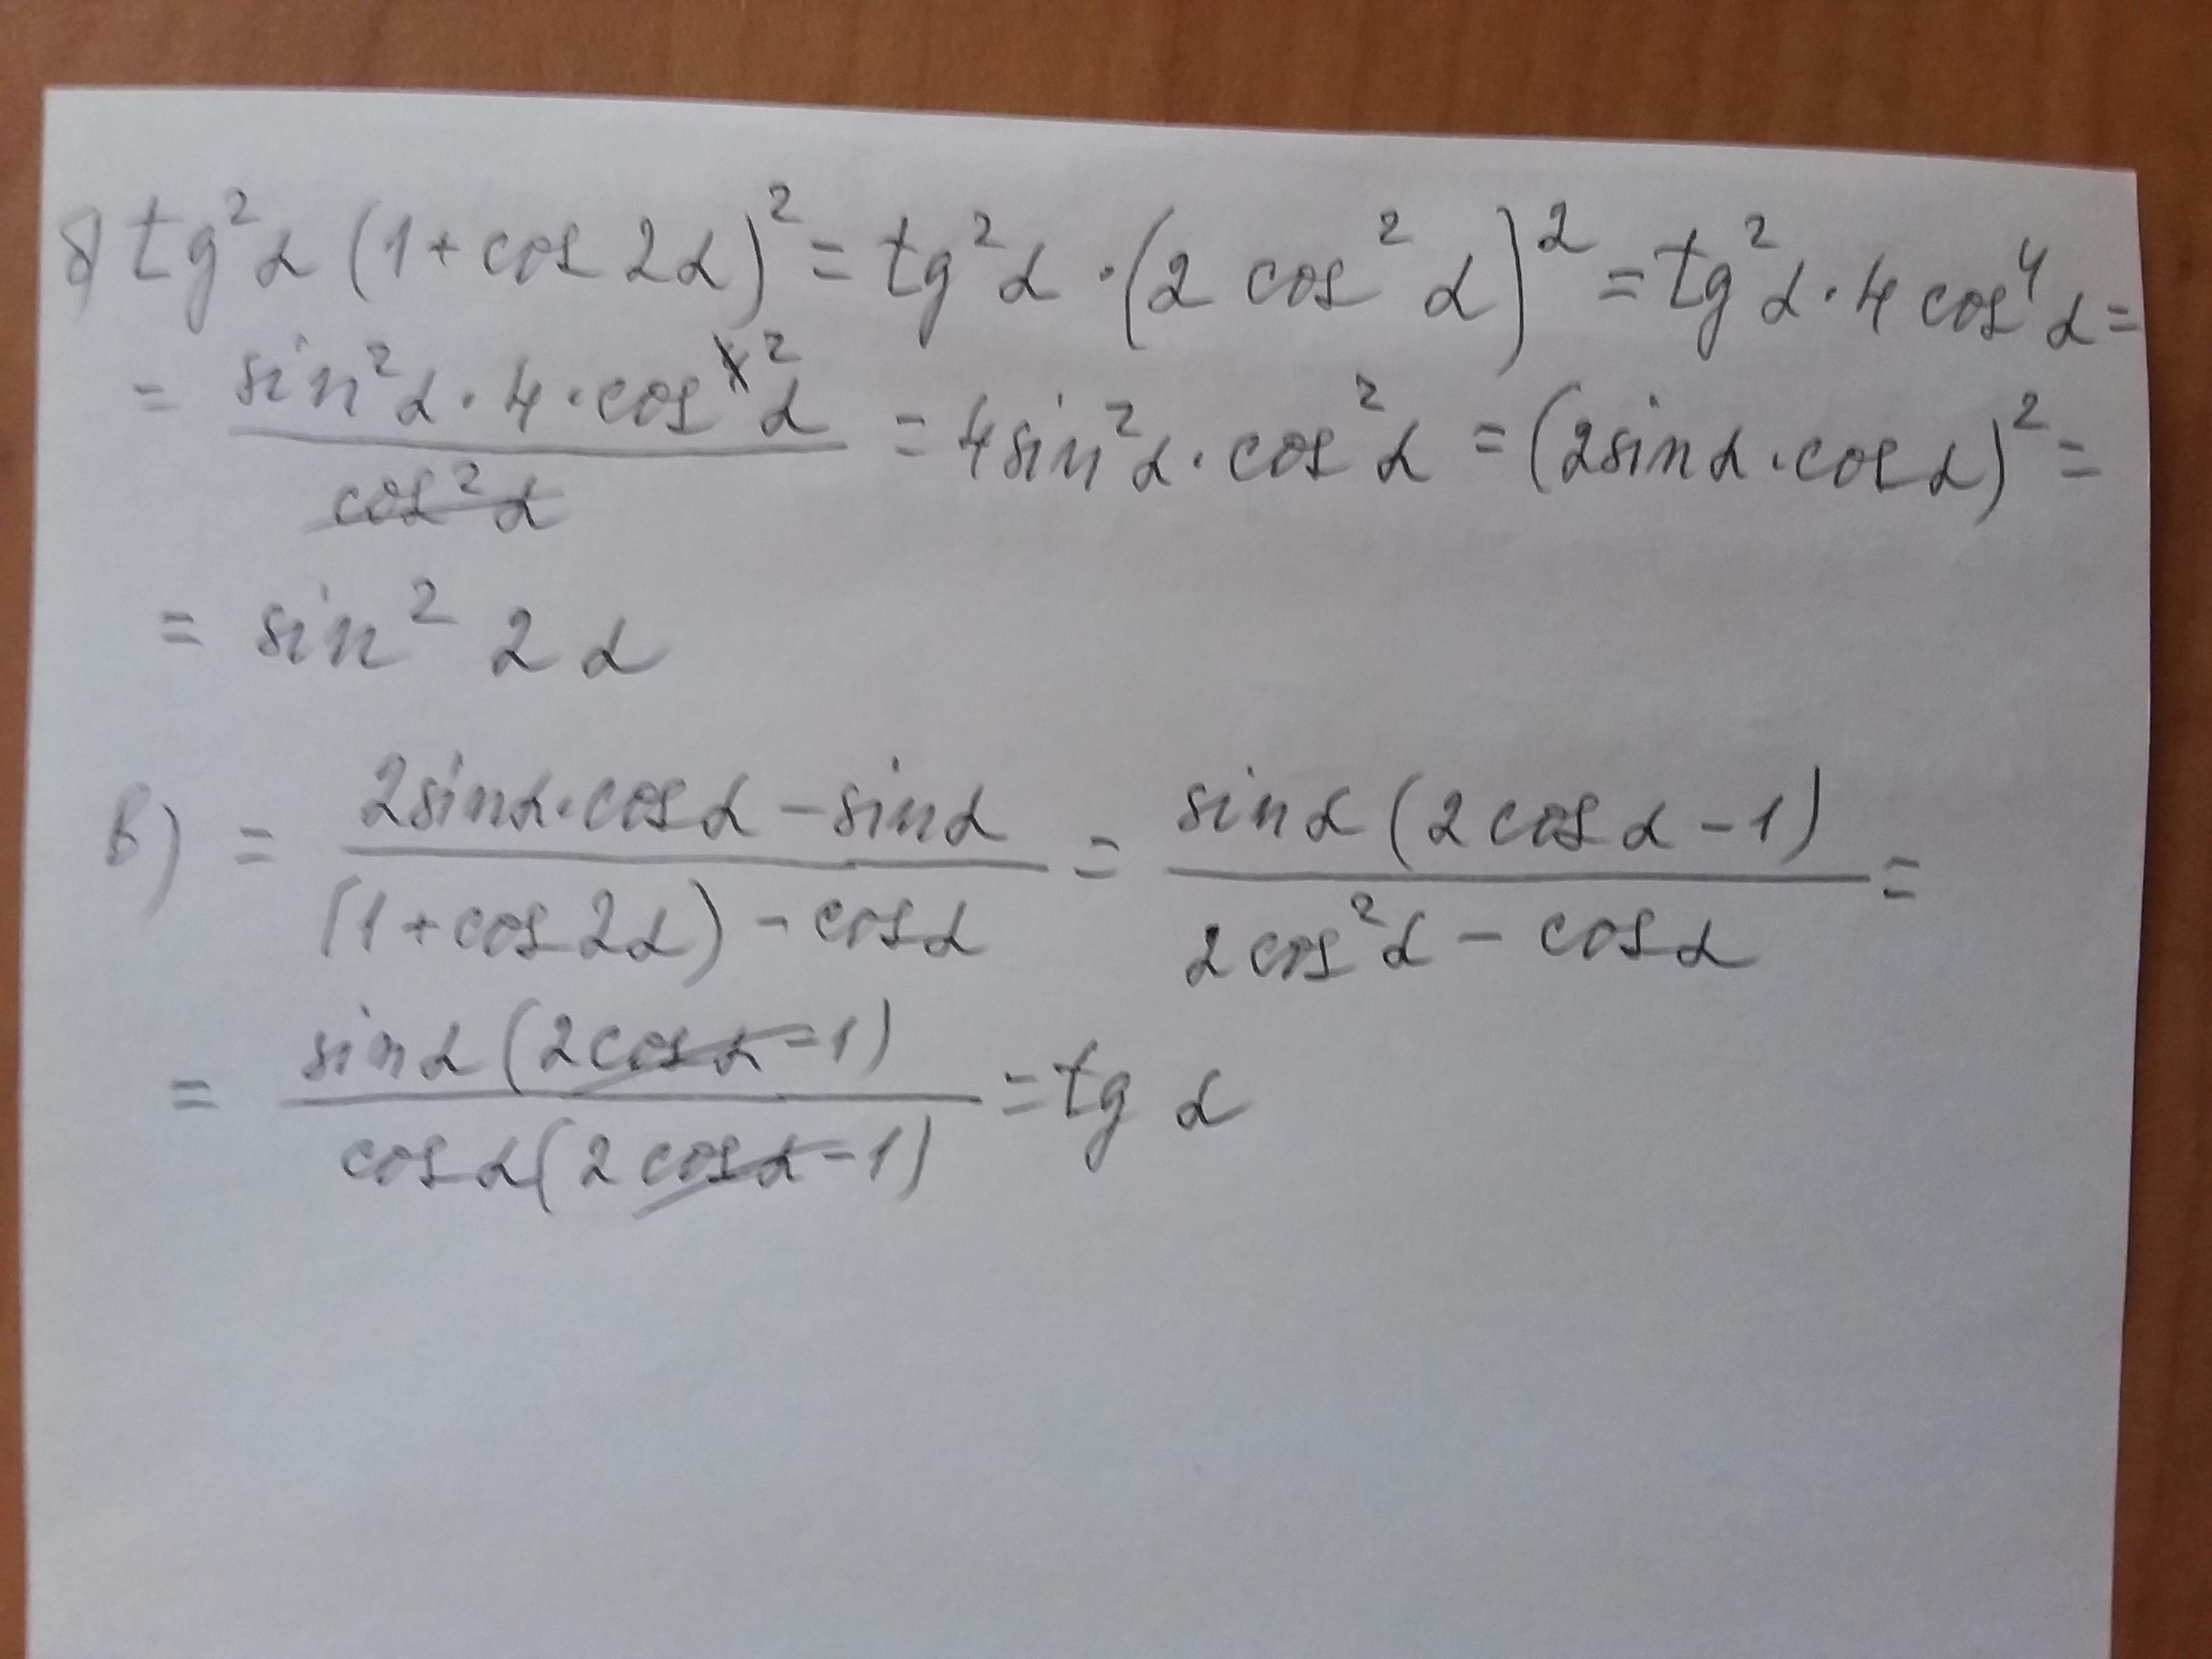 б) tg²α (1 + cos 2α)² = tg²α · (2 cos²α)² = tg²α · 4 cos⁴α =
= sin²α · 4 · cos²α / cos²α = 4sin²α · cos²α = (2sinα · cosα)² =
= sin² 2α
в) = 2sinα · cosα - sinα / (1 + cos 2α) - cosα = sinα (2cosα - 1) / 2cos²α - cosα =
= sinα (2cosα - 1) / cosα (2cosα - 1) = tg α